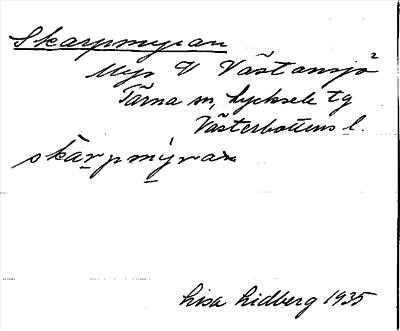 Skarpmyran
Myr V Västansjö 2
Tärna sn, Lycksele tg
Västerbottens l.
skarpmyran
Lisa Lidberg 1935